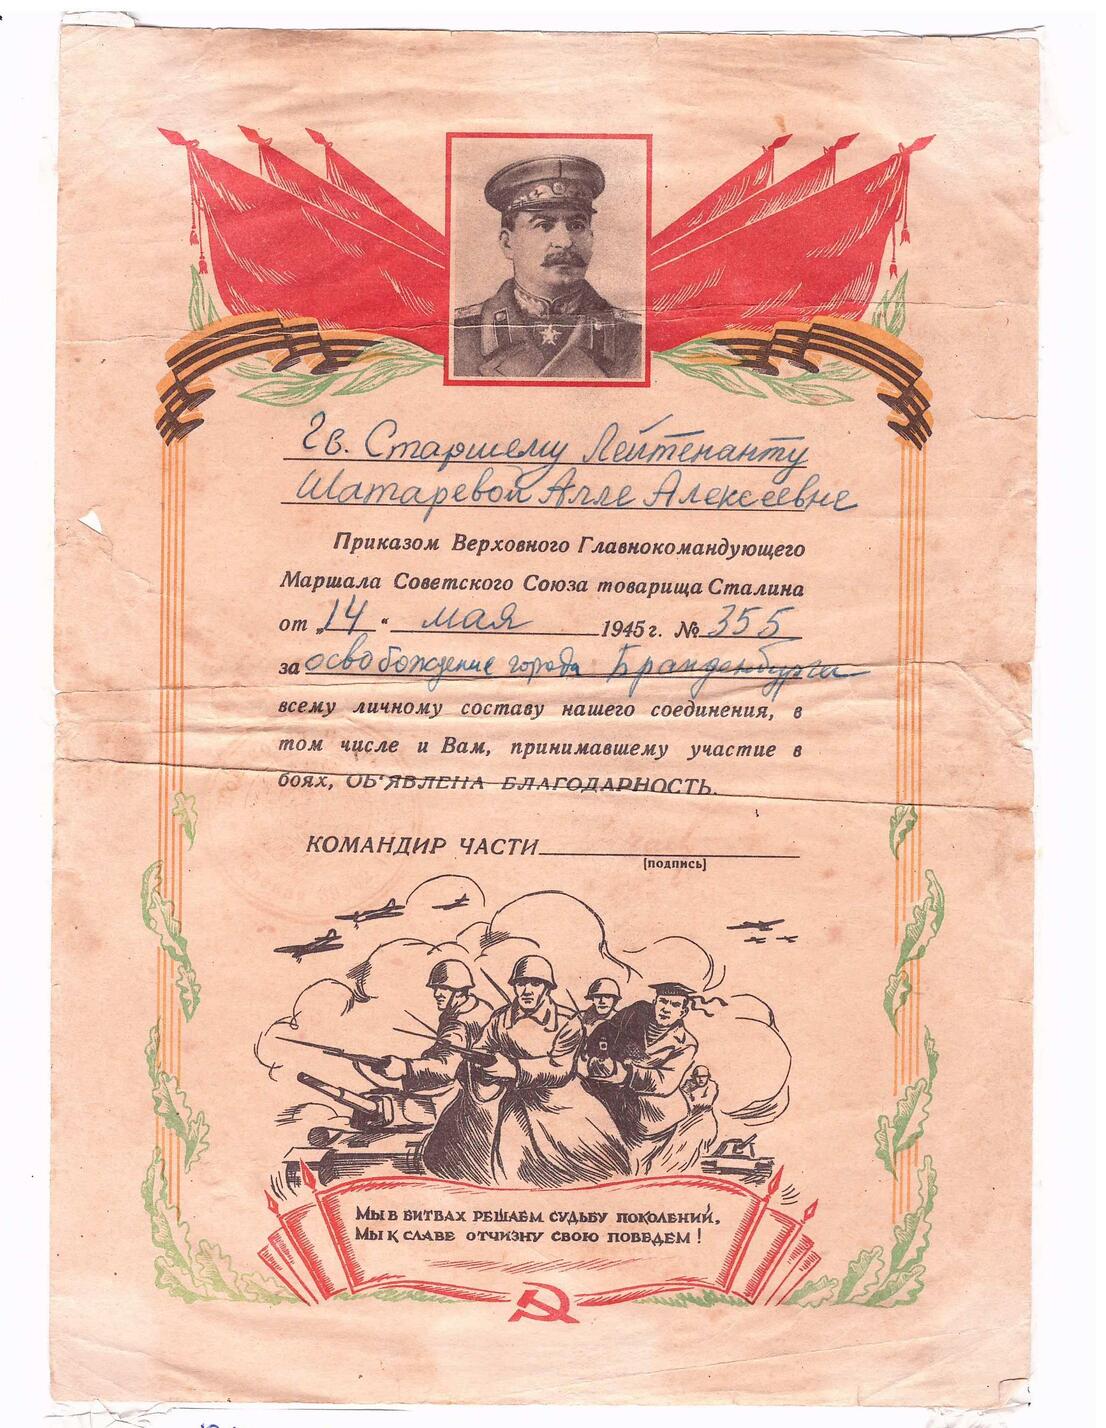 Гв. Старшему Лейтенанту
Шатаревой Алле Алексеевне
Приказом Верховного Главнокомандующего
Маршала Советского Союза товарища Сталина
от „14“ мая 1945 г. № 355
за освобождение города Бранденбурга
всему личному составу нашего соединения, в
том числе и Вам, принимавшему участие в
боях, ОБ'ЯВЛЕНА БЛАГОДАРНОСТЬ.
КОМАНДИР ЧАСТИ
[подпись]
Мы в битвах решаем судьбу поколений,
Мы к славе отчизну свою поведем!